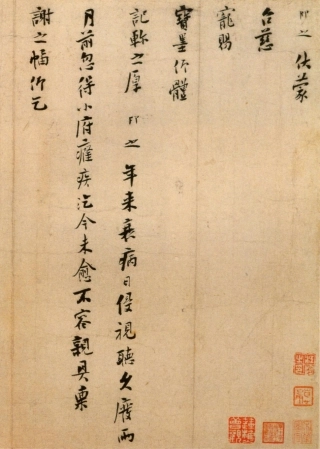 即之伏蒙
台慈
寵賜
寶墨仰體
記軫之厚即之年来衰病日侵視聽久廢兩
月前忽得小府癃疾迄今未愈不容親具稟
謝之幅仰乞